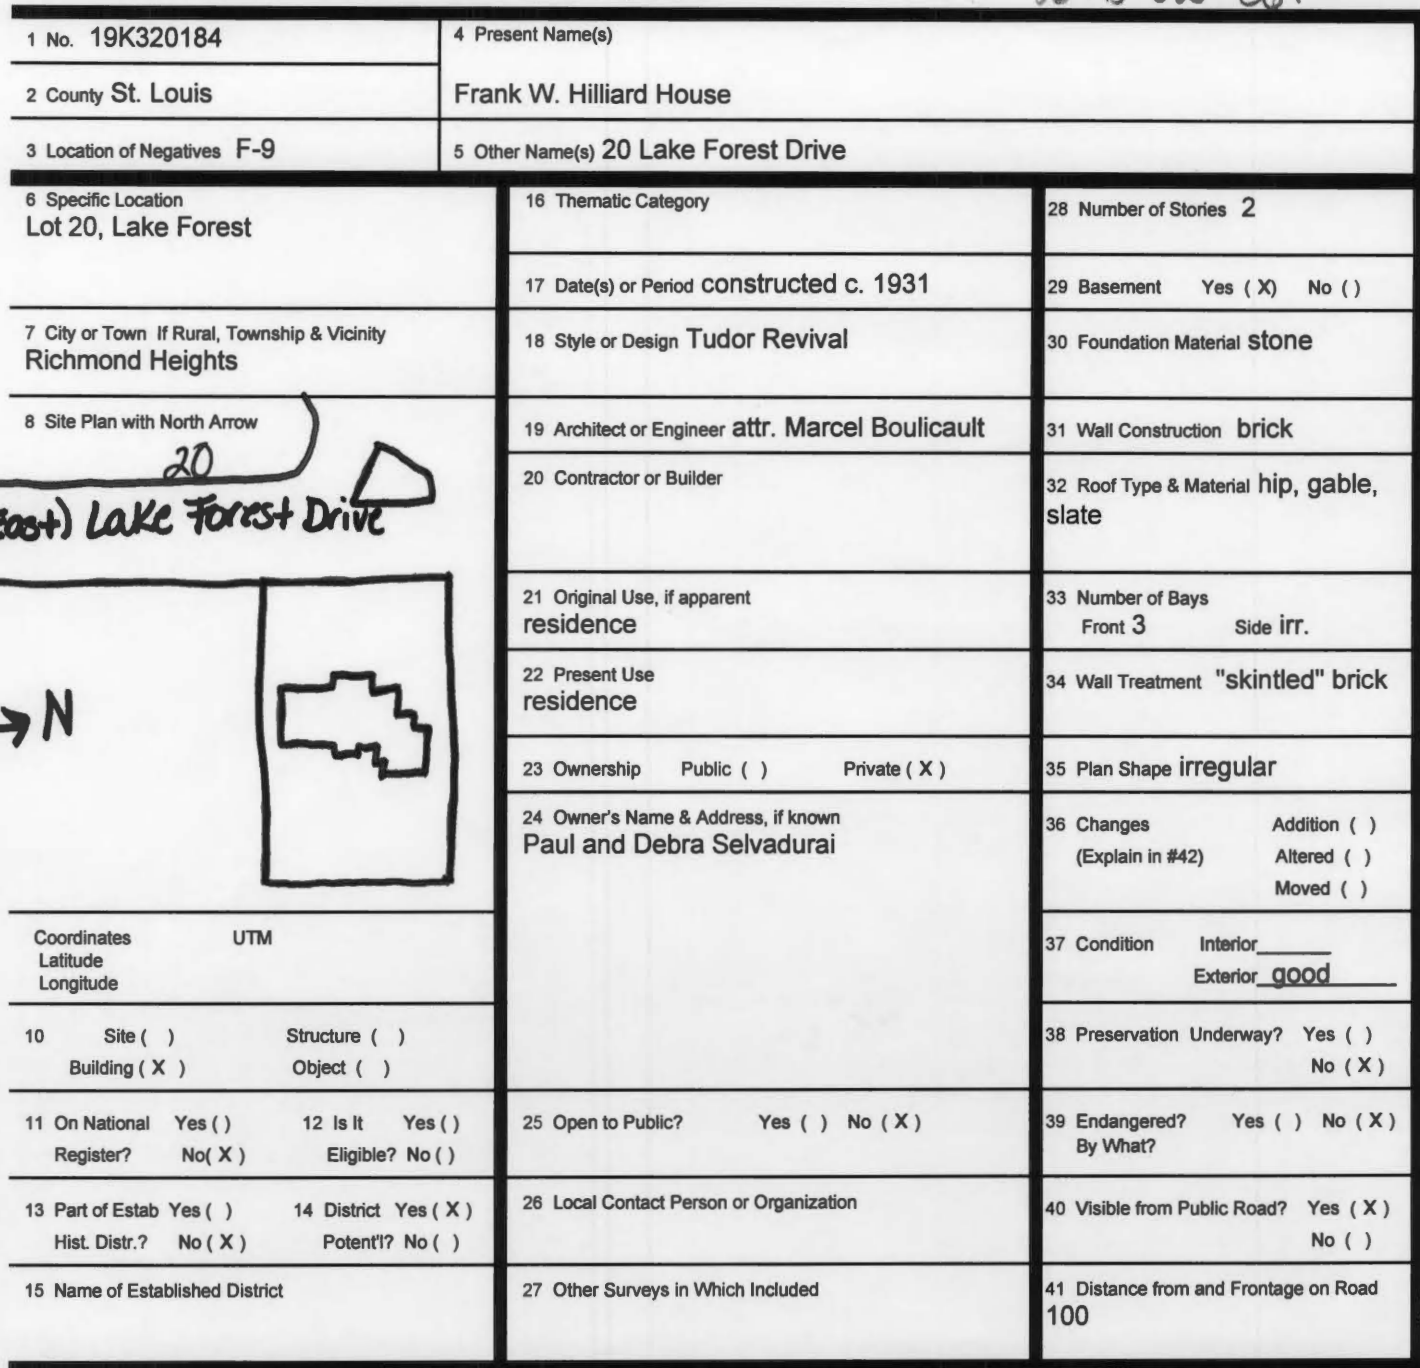 1 No. 19K320184
4 Present Name(s)
2 County St. Louis
Frank W. Hilliard House
3 Location of Negatives F-9
5 Other Name(s) 20 Lake Forest Drive
6 Specific Location
Lot 20, Lake Forest
7 City or Town If Rural, Township & Vicinity
Richmond Heights
8 Site Plan with North Arrow
20
Lake Forest Drive
N
Coordinates UTM
Latitude
Longitude
10 Site ( ) Structure ( )
Building ( X ) Object ( )
11 On National Yes ( ) 12 Is It Yes ( )
Register? No( X ) Eligible? No ( )
13 Part of Estab Yes ( ) 14 District Yes ( X )
Hist. Distr.? No ( X ) Potent'l? No ( )
15 Name of Established District
16 Thematic Category
17 Date(s) or Period constructed c. 1931
18 Style or Design Tudor Revival
19 Architect or Engineer attr. Marcel Boulicault
20 Contractor or Builder
21 Original Use, if apparent
residence
22 Present Use
residence
23 Ownership Public ( ) Private ( X )
24 Owner's Name & Address, if known
Paul and Debra Selvadurai
25 Open to Public? Yes ( ) No ( X )
26 Local Contact Person or Organization
27 Other Surveys in Which Included
28 Number of Stories 2
29 Basement Yes ( X) No ( )
30 Foundation Material stone
31 Wall Construction brick
32 Roof Type & Material hip, gable,
slate
33 Number of Bays
Front 3 Side irr.
34 Wall Treatment "skintled" brick
35 Plan Shape irregular
36 Changes Addition ( )
(Explain in #42) Altered ( )
Moved ( )
37 Condition Interior
Exterior good
38 Preservation Underway? Yes ( )
No ( X )
39 Endangered? Yes ( ) No ( X )
By What?
40 Visible from Public Road? Yes ( X )
No ( )
41 Distance from and Frontage on Road
100